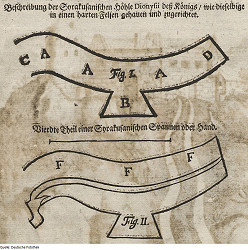 Beschreibung der Syrakusanischen Höhle Dionysii deß Königs/ wie dieselbige
in einen harten Felsen gehauen und zugerichtet.
C A A Fig. I. A D
B
Vierdte Theil einer Syrakusanischen Spannen oder Hand.
F F F
Fig. II.
Quelle: Deutsche Fotothek